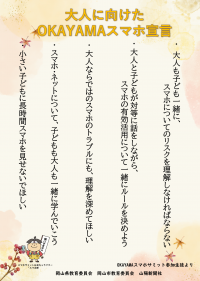 大人に向けた
OKAYAMAスマホ宣言
・大人も子ども一緒に、
スマホについてのリスクを理解しなければならない
・大人と子どもが対等に話をしながら、
スマホの有効活用について一緒にルールを決めよう
・大人ならではのスマホのトラブルにも、理解を深めてほしい
・スマホ・ネットについて、子どもも大人も一緒に学んでいこう
・小さい子どもに長時間スマホを見せないでほしい
OKAYAMAスマホサミット参加生徒より
岡山県教育委員会 岡山市教育委員会 山陽新聞社